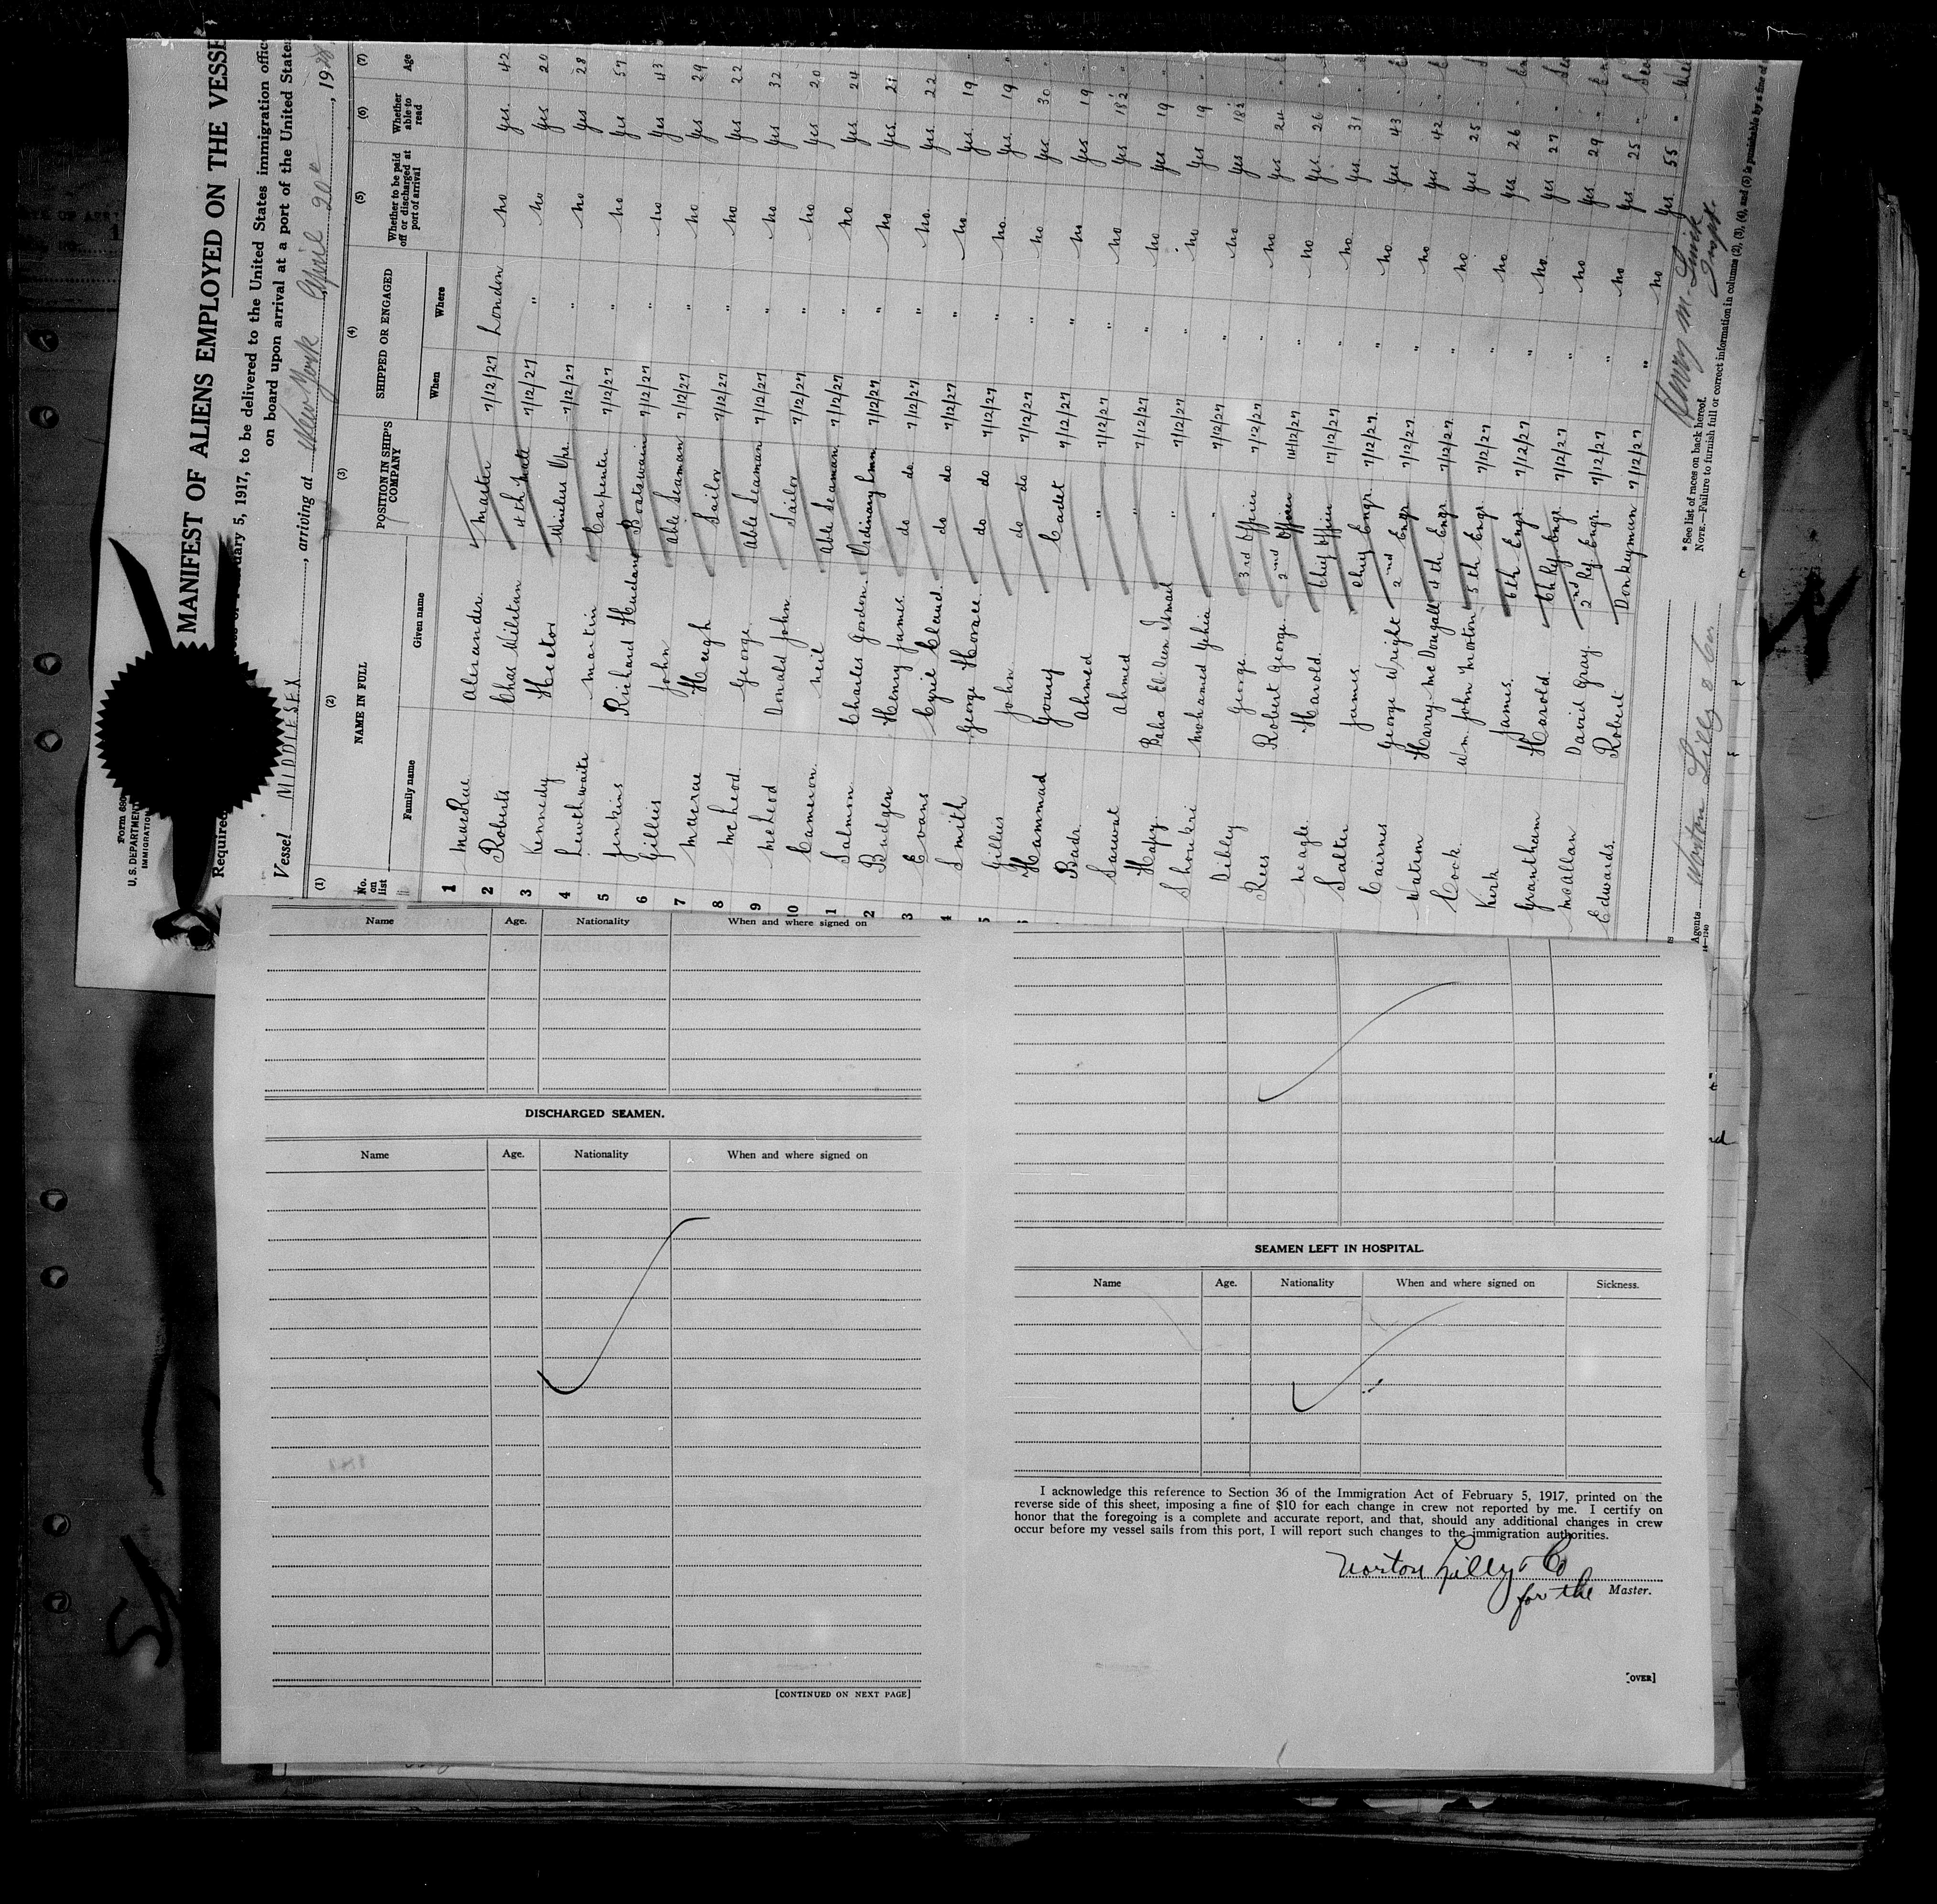 Form 680
U. S. DEPARTMENT
IMMIGRATION
MANIFEST OF ALIENS EMPLOYED ON THE VESSE
Required
uary 5, 1917, to be delivered to the United States immigration offic
on board upon arrival at a port of the United State
Vessel MIDDLESEX, arriving at New York April 20th, 1928
(1) (2) (3) (4) (5) (6) (7)
No. on list NAME IN FULL POSITION IN SHIP'S COMPANY SHIPPED OR ENGAGED Whether to be paid off or discharged at port of arrival Whether able to read Age
Family name Given name When Where
1 MacRae Alexander Master 7/12/27 London no yes 42
2 Roberts Chas 4th Mate 7/12/27 " no yes 20
3 Kennedy Hector Wireless Opr. 7/12/27 " no yes 28
4 Lewthwaite Martin Carpenter 7/12/27 " no yes 57
5 Jenkins Richard Boatswain 7/12/27 " no yes 43
6 Gillies John Able Seaman 7/12/27 " no yes 29
7 Macrae Hugh Sailor 7/12/27 " no yes 22
8 McLeod George Able Seaman 7/12/27 " no yes 32
9 McLeod Donald John Sailor 7/12/27 " no yes 20
10 Cameron Neil Able Seaman 7/12/27 " no yes 24
1 Salmon Charles Gordon Ordinary Smn 7/12/27 " no yes 21
2 Budgen Henry James do do 7/12/27 " no yes 22
3 Evans Cyril Claud do do 7/12/27 " no yes 19
4 Smith George Horace do do 7/12/27 " no yes 19
5 Gillies John do do 7/12/27 " no yes 30
Hammad Yousry Cadet 7/12/27 " no yes 19
Badr Ahmed " 7/12/27 " no yes 18½
Sarwat Ahmed " 7/12/27 " no yes 19
Hafiz Baha El Deen Ismail " 7/12/27 " no yes 19
Shoukri Mohamed Yehia " 7/12/27 " no yes 18½
Dibley George 3rd Officer 7/12/27 " no yes 24
Rees Robert George 2nd Officer 14/12/27 " no yes 26
Neagle Harold Chief Officer 17/12/27 " no yes 31
Salter James Chief Engr. 7/12/27 " no yes 43
Cairnes George Wright 2nd Engr 7/12/27 " no yes 42
Harry McDougall 4th Engr 7/12/27 " no yes 25
Cook Wm. John Morton 5th Engr 7/12/27 " no yes 26
Kirk James 6th Engr 7/12/27 " no yes 27
Grantham Harold Ch Rfg Engr 7/12/27 " no yes 29
McAllan David Gray 2nd Rfg Engr. 7/12/27 " no yes 25
Edwards Robert Donkeyman 7/12/27 " no yes 55
Agents Norton Lilly & Co
* See list of races on back hereof.
NOTE.—Failure to furnish full or correct information in columns (2), (3), (4), and (5) is punishable by a fine of
14—1240
Name Age. Nationality When and where signed on
DISCHARGED SEAMEN.
Name Age. Nationality When and where signed on
[CONTINUED ON NEXT PAGE]
SEAMEN LEFT IN HOSPITAL.
Name Age. Nationality When and where signed on Sickness.
I acknowledge this reference to Section 36 of the Immigration Act of February 5, 1917, printed on the
reverse side of this sheet, imposing a fine of $10 for each change in crew not reported by me. I certify on
honor that the foregoing is a complete and accurate report, and that, should any additional changes in crew
occur before my vessel sails from this port, I will report such changes to the immigration authorities.
Norton Lilly & Co
for the Master.
[OVER]